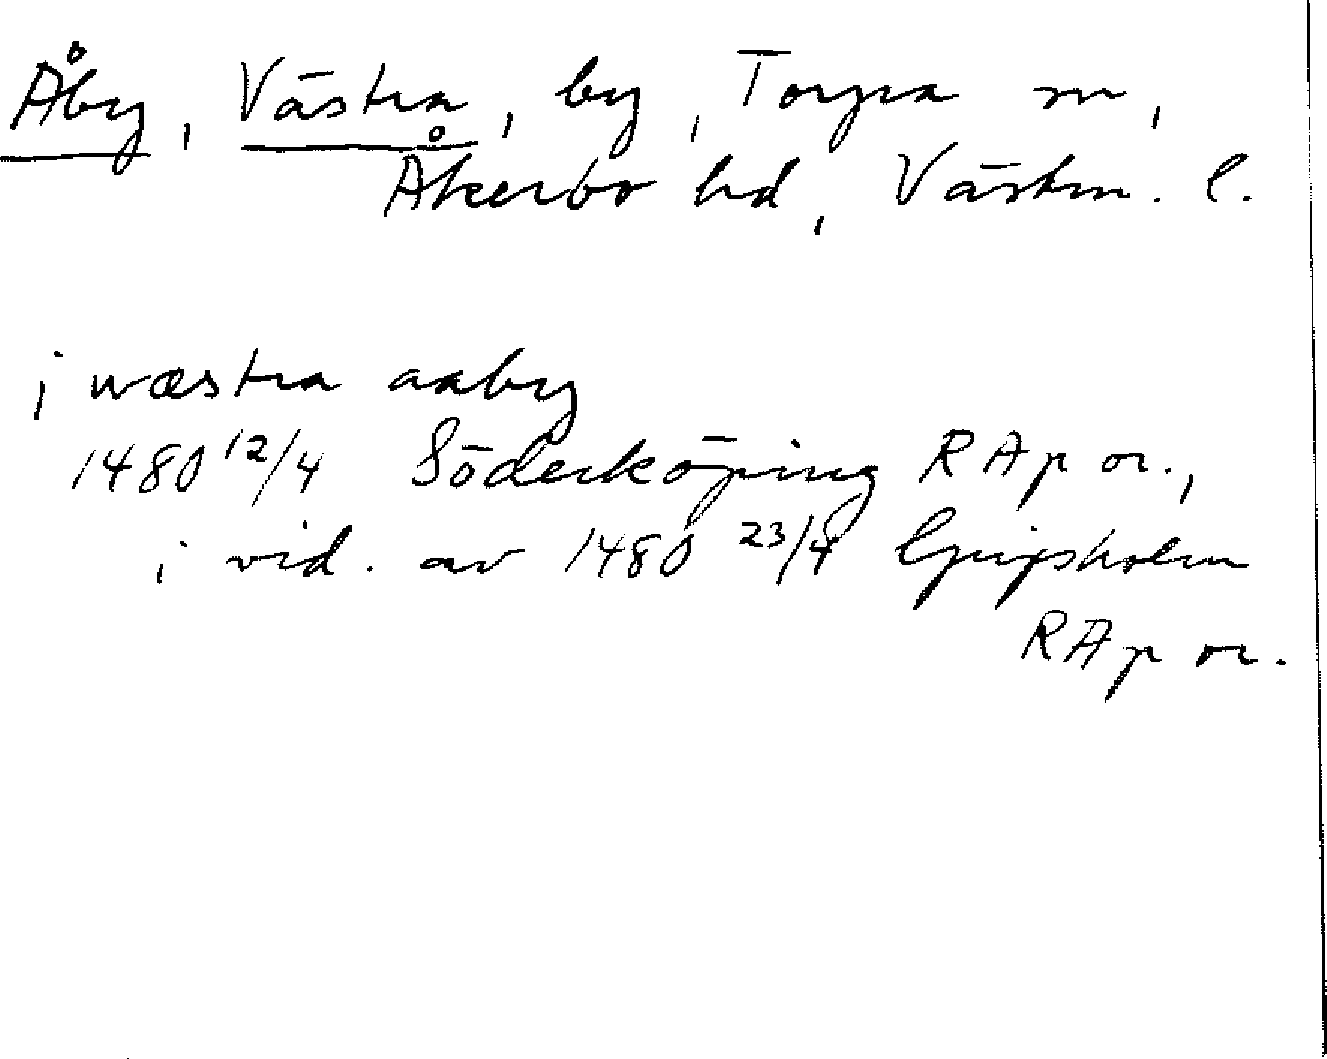 Åby, Västra, by, Torpa sn,
Åkerbo hd, Västm. l.
i wæstra aaby
1480 12/4 Söderköping RAp or.,
i vid. av 1480 23/4 Gripsholm
RAp or.